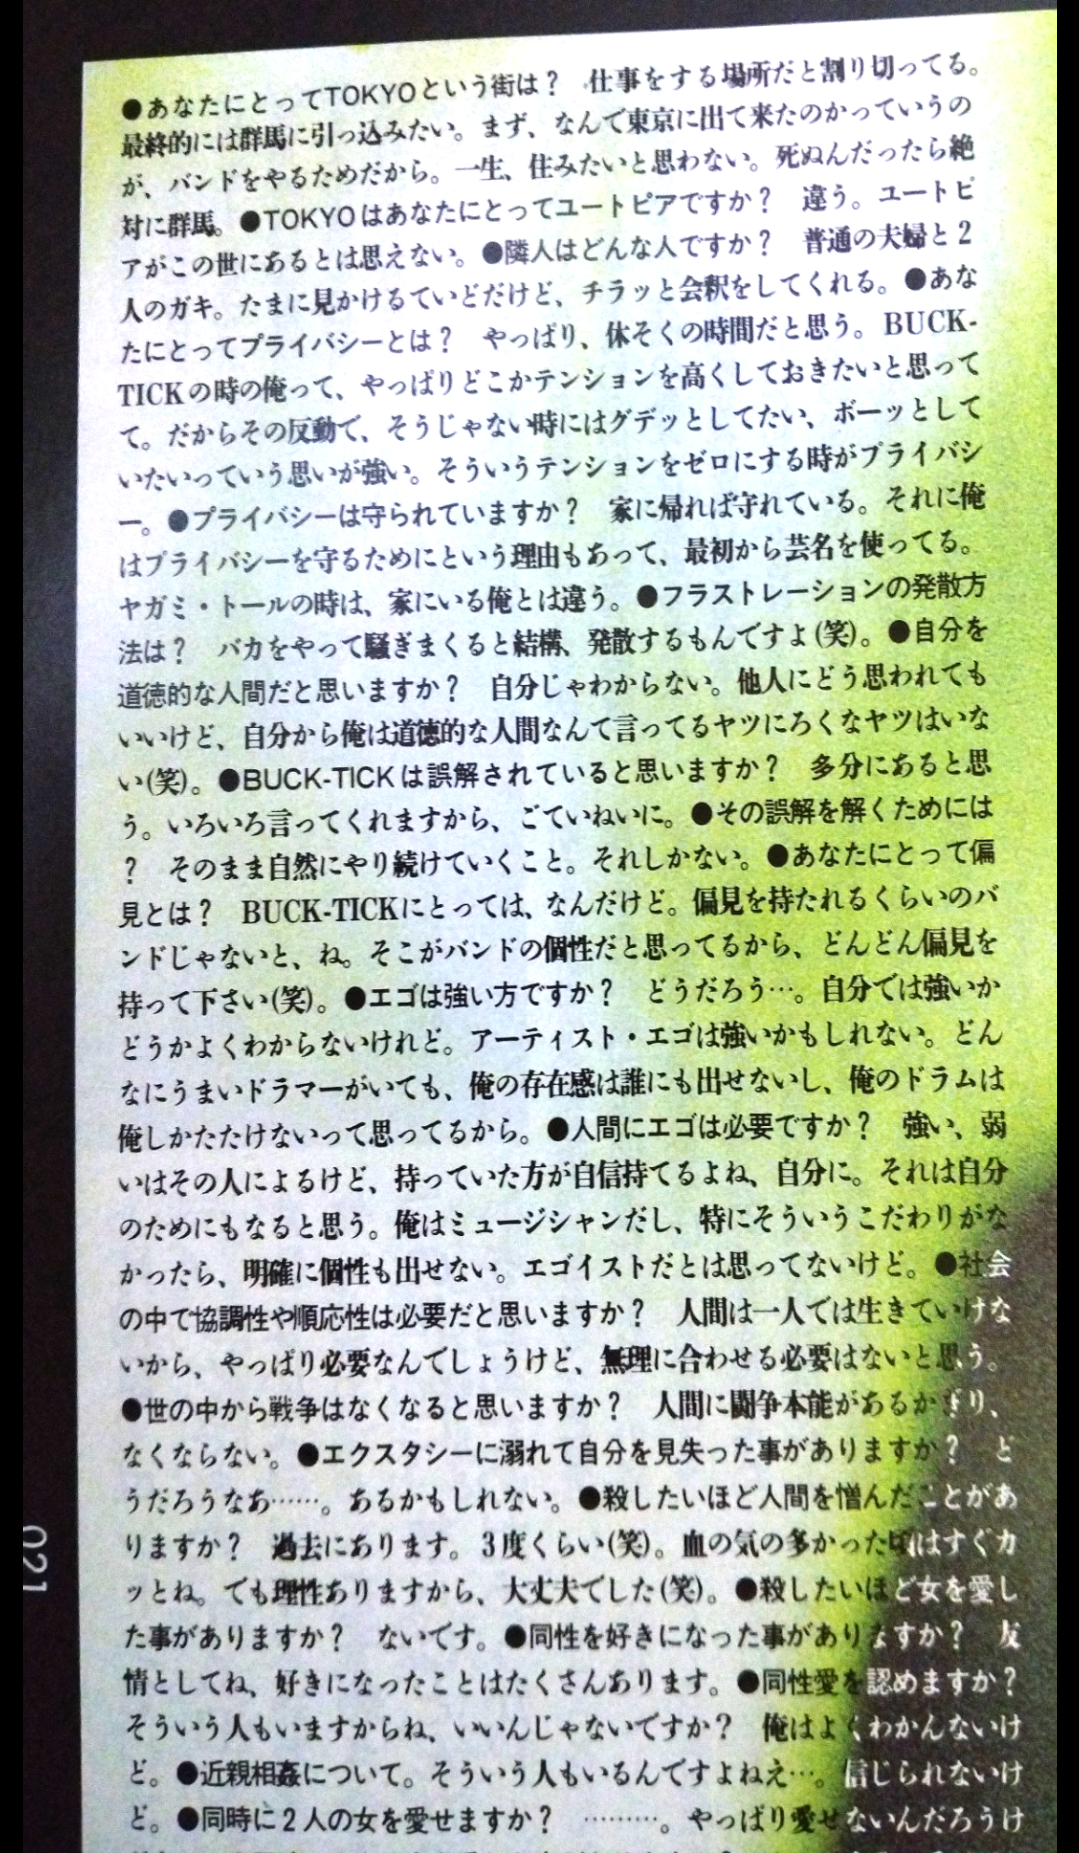 ●あなたにとってTOKYOという街は？　仕事をする場所だと割り切ってる。
最終的には群馬に引っ込みたい。まず、なんで東京に出て来たのかっていうの
が、バンドをやるためだから。一生、住みたいと思わない。死ぬんだったら絶
対に群馬。●TOKYOはあなたにとってユートピアですか？　違う。ユートピ
アがこの世にあるとは思えない。●隣人はどんな人ですか？　普通の夫婦と2
人のガキ。たまに見かけるていどだけど、チラッと会釈をしてくれる。●あな
たにとってプライバシーとは？　やっぱり、休そくの時間だと思う。BUCK-
TICKの時の俺って、やっぱりどこかテンションを高くしておきたいと思って
て。だからその反動で、そうじゃない時にはグデッとしてたい、ボーッとして
いたいっていう思いが強い。そういうテンションをゼロにする時がプライバシ
ー。●プライバシーは守られていますか？　家に帰れば守れている。それに俺
はプライバシーを守るためにという理由もあって、最初から芸名を使ってる。
ヤガミ・トールの時は、家にいる俺とは違う。●フラストレーションの発散方
法は？　バカをやって騒ぎまくると結構、発散するもんですよ(笑)。●自分を
道徳的な人間だと思いますか？　自分じゃわからない。他人にどう思われても
いいけど、自分から俺は道徳的な人間なんて言ってるヤツにろくなヤツはいな
い(笑)。●BUCK-TICKは誤解されていると思いますか？　多分にあると思
う。いろいろ言ってくれますから、ごていねいに。●その誤解を解くためには
？　そのまま自然にやり続けていくこと。それしかない。●あなたにとって偏
見とは？　BUCK-TICKにとっては、なんだけど。偏見を持たれるくらいのバ
ンドじゃないと、ね。そこがバンドの個性だと思ってるから、どんどん偏見を
持って下さい(笑)。●エゴは強い方ですか？　どうだろう…。自分では強いか
どうかよくわからないけれど。アーティスト・エゴは強いかもしれない。どん
なにうまいドラマーがいても、俺の存在感は誰にも出せないし、俺のドラムは
俺しかたたけないって思ってるから。●人間にエゴは必要ですか？　強い、弱
いはその人によるけど、持っていた方が自信持てるよね、自分に。それは自分
のためにもなると思う。俺はミュージシャンだし、特にそういうこだわりがな
かったら、明確に個性も出せない。エゴイストだとは思ってないけど。●社会
の中で協調性や順応性は必要だと思いますか？　人間は一人では生きていけな
いから、やっぱり必要なんでしょうけど、無理に合わせる必要はないと思う。
●世の中から戦争はなくなると思いますか？　人間に闘争本能があるかぎり、
なくならない。●エクスタシーに溺れて自分を見失った事がありますか？　ど
うだろうなあ……。あるかもしれない。●殺したいほど人間を憎んだことがあ
りますか？　過去にあります。3度くらい(笑)。血の気の多かった頃はすぐカ
ッとね。でも理性ありますから、大丈夫でした(笑)。●殺したいほど女を愛し
た事がありますか？　ないです。●同性を好きになった事がありますか？　友
情としてね、好きになったことはたくさんあります。●同性愛を認めますか？
そういう人もいますからね、いいんじゃないですか？　俺はよくわかんないけ
ど。●近親相姦について。そういう人もいるんですよねえ…。信じられないけ
ど。●同時に2人の女を愛せますか？　………。やっぱり愛せないんだろうけ
021